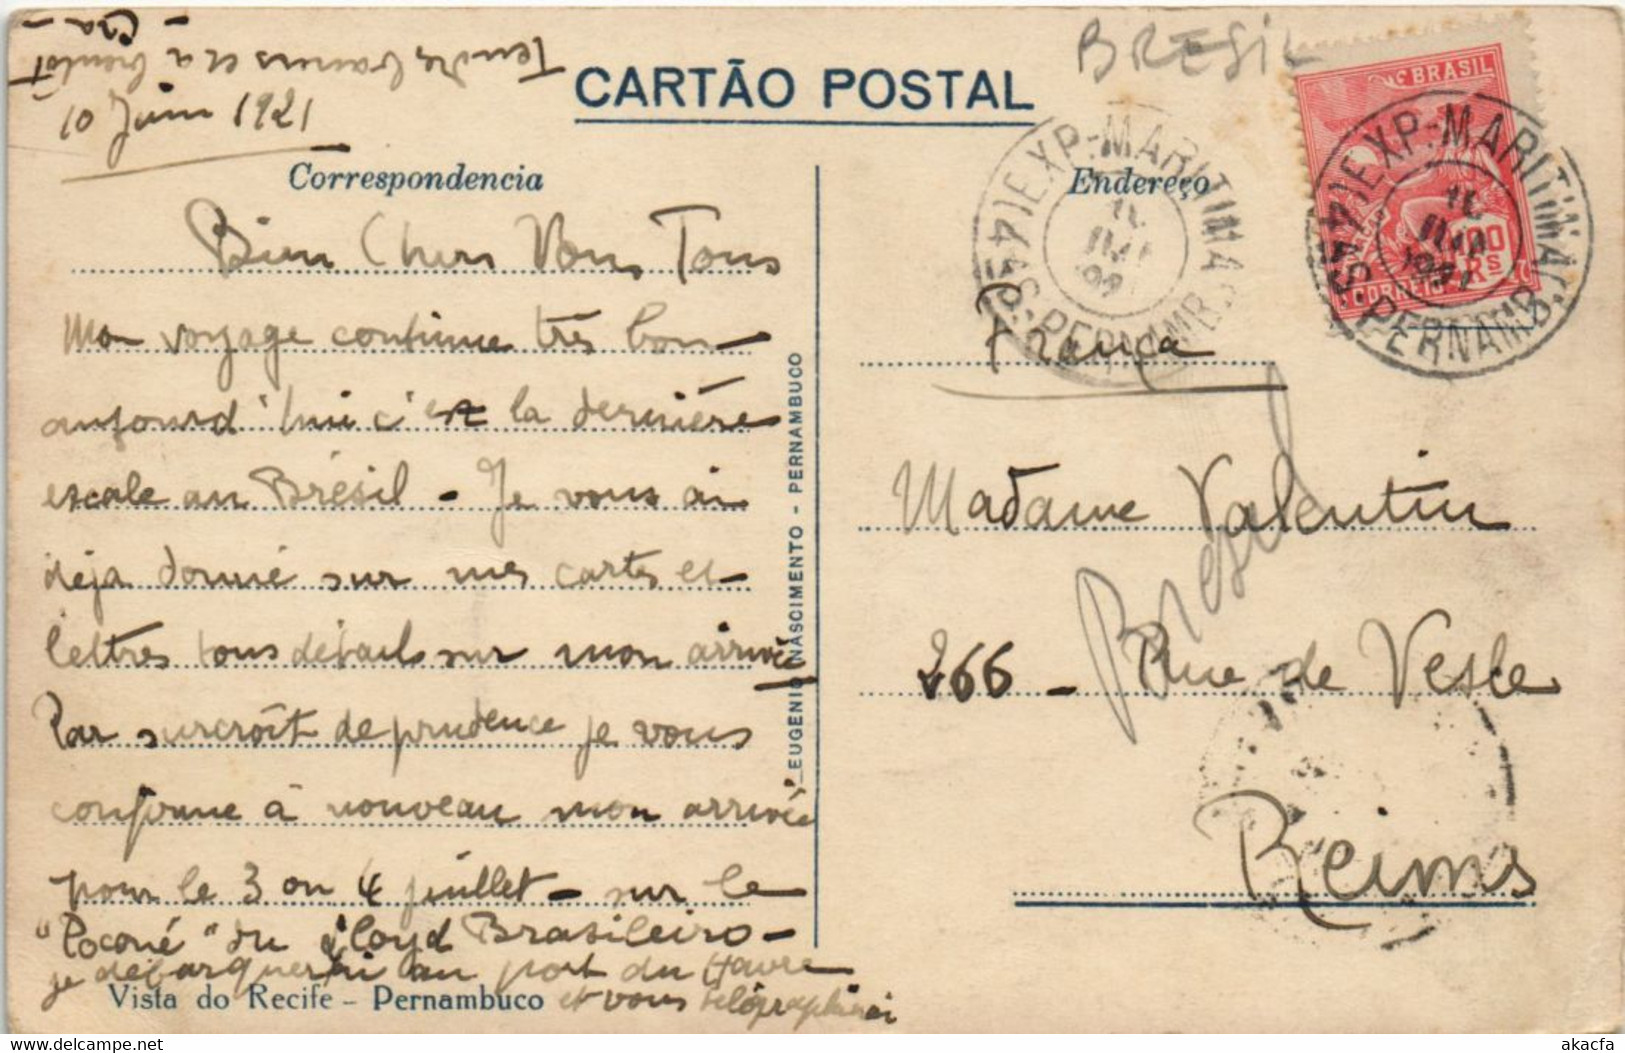 Tendres baisers et à bientôt
10 Juin 1921
CARTÃO POSTAL
BRESIL
Correspondencia
Endereço
BRASIL
CORREIO
RS
EXP.-MARITIMA
(4ªS.)PERNAMB.
EXP.-MARITIMA
(4ªS.)PERNAMB.
Bien Chers Vous Tous
Mon voyage continue très bon
aujourd'hui c'est la dernière
escale au Brésil - Je vous ai
déja donné sur mes cartes et
lettres tous détails sur mon arrivée
Par surcroît de prudence je vous
confirme à nouveau mon arrivée
pour le 3 ou 4 juillet - sur le
"Poconé" du Lloyd Brasileiro -
je débarquerai au port du Havre
et vous télégraphierai
Vista do Recife - Pernambuco
EUGENIO NASCIMENTO - PERNAMBUCO
França
Madame Valentin
Brésil
266 - Rue de Vesle
Reims
akacfa